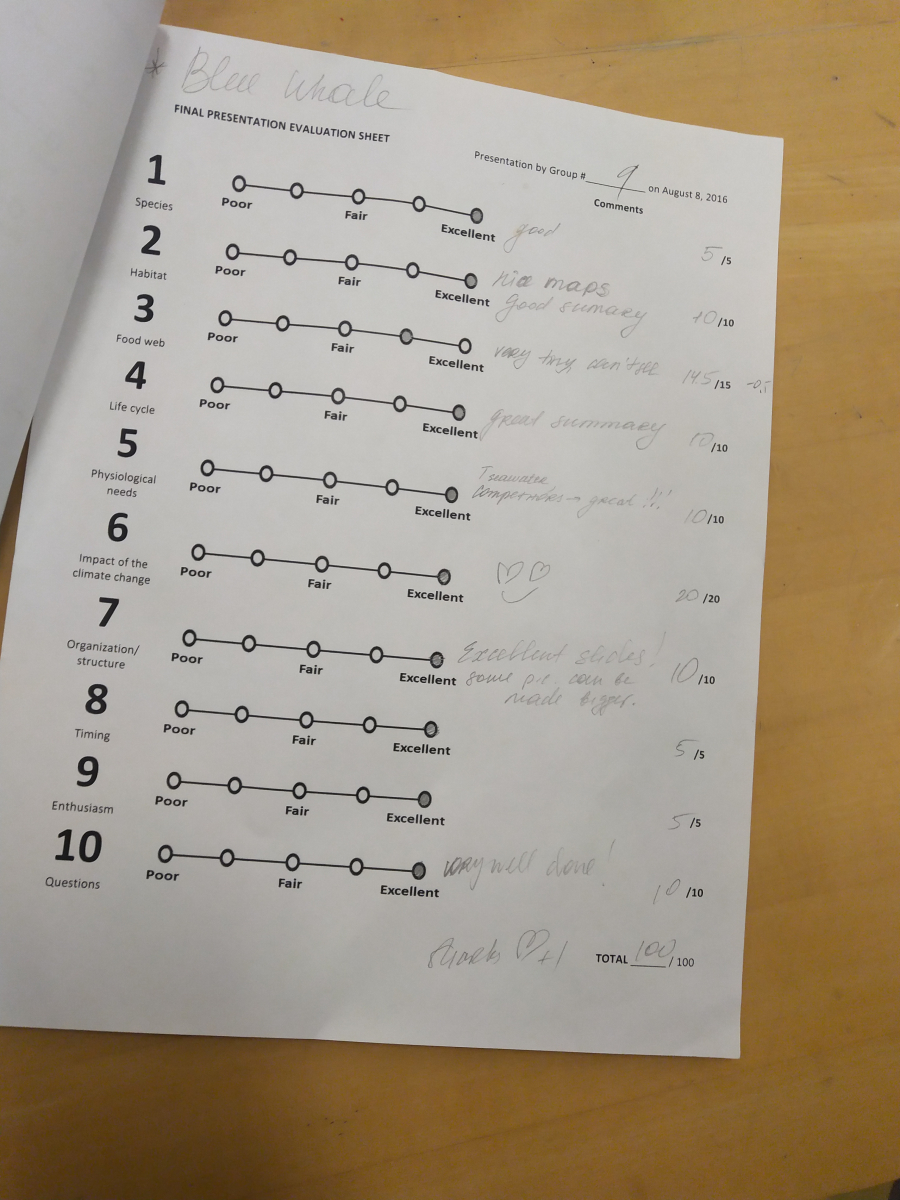 * Blue Whale
FINAL PRESENTATION EVALUATION SHEET
Presentation by Group # 9 on August 8, 2016
Comments
1
Species
Poor Fair Excellent good 5/5
2
Habitat
Poor Fair Excellent nice maps
good sumary 10/10
3
Food web
Poor Fair Excellent very tiny, can't see 14.5/15 -0.5
4
Life cycle
Poor Fair Excellent great summary 10/10
5
Physiological
needs
Poor Fair Excellent
great !!! 10/10
6
Impact of the
climate change
Poor Fair Excellent 20/20
7
Organization/
structure
Poor Fair Excellent Excellent slides! 10/10
some pic. can be
made bigger.
8
Timing
Poor Fair Excellent 5/5
9
Enthusiasm
Poor Fair Excellent 5/5
10
Questions
Poor Fair Excellent very well done! 10/10
+1 TOTAL 100/100